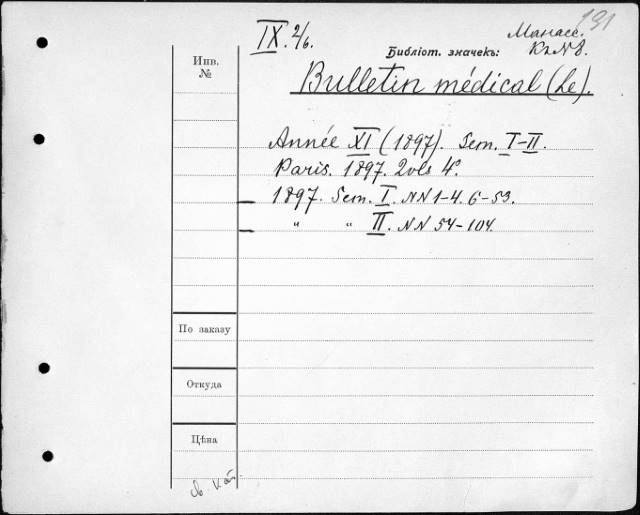 191
IX. 2/6.
Манасс.
Библіот. значекъ:
К. N 8.
Инв.
№
Bulletin médical (Le).
Année XI (1897). Sem. I-II.
Paris. 1897. 2 vols 4º.
1897. Sem. I. NN 1-4. 6-53.
" " II. NN 54-104.
По заказу
Откуда
Цѣна